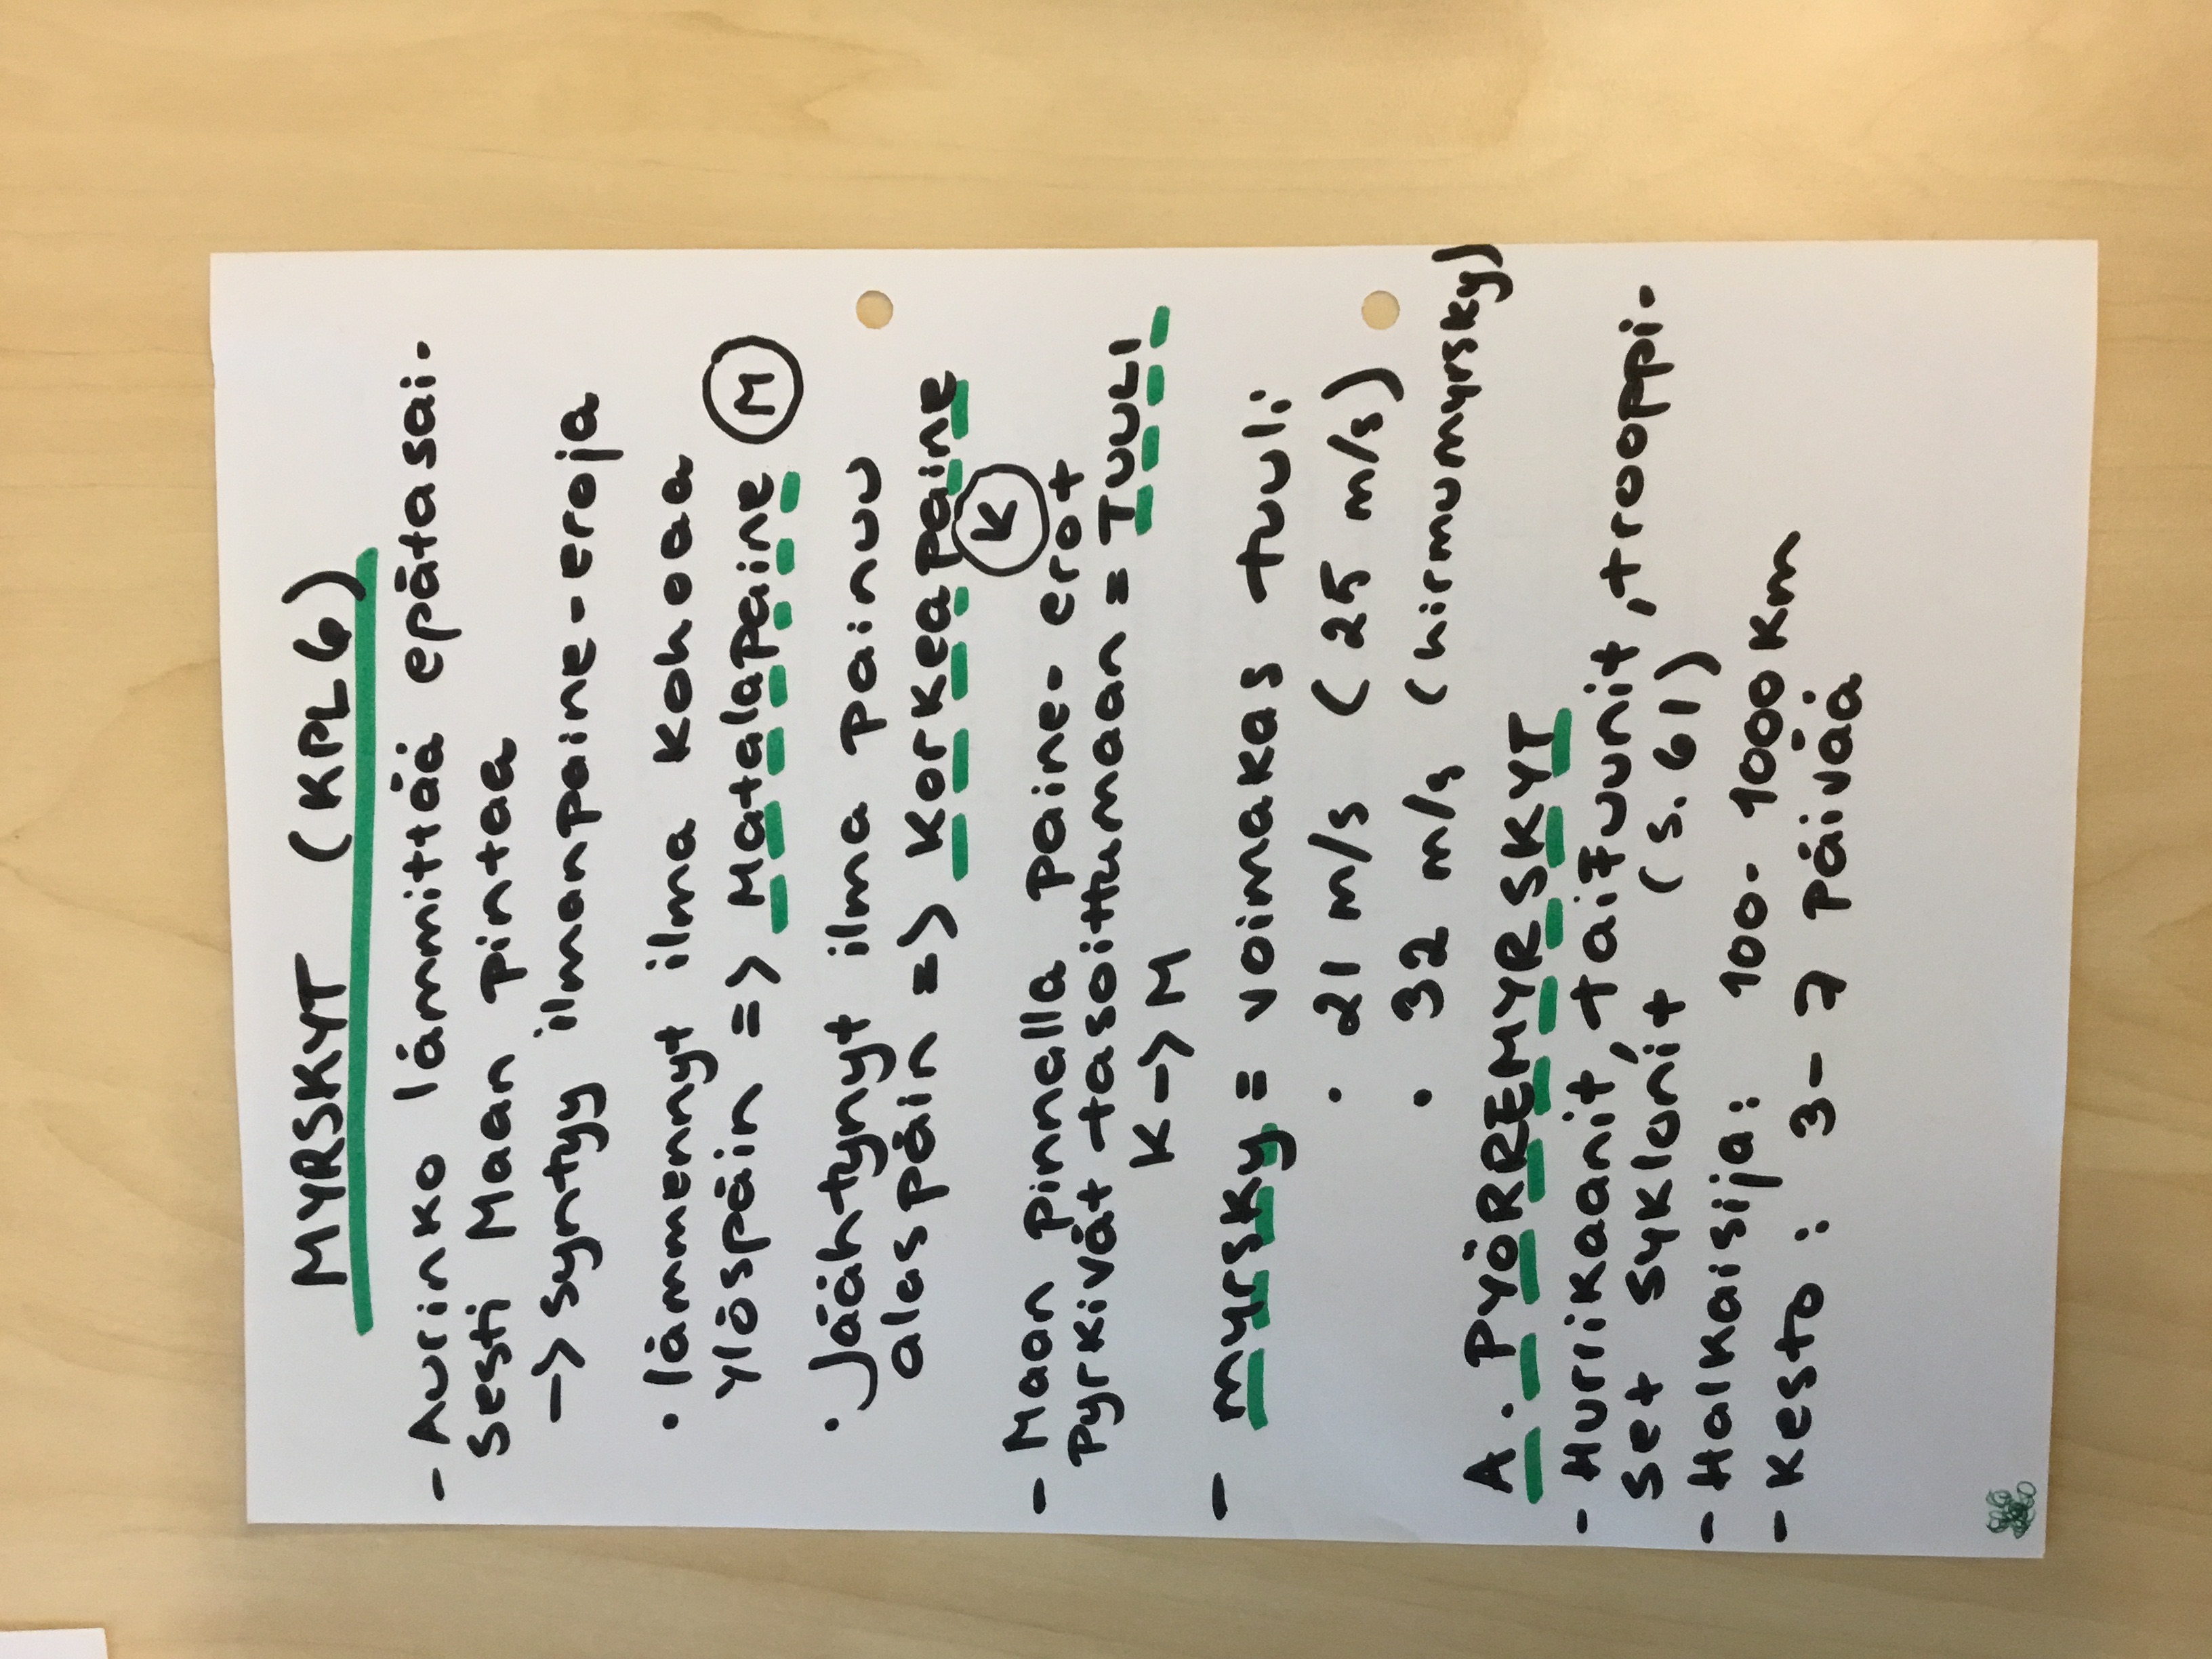 MYRSKYT (KPL 6)
- Aurinko lämmittää epätasai-
sesti Maan pintaa
-> syntyy ilmanpaine-eroja
• lämmennyt ilma kohoaa
ylöspäin => Matalapaine (M)
• Jäähtynyt ilma painuu
alaspäin => Korkeapaine
(K)
- Maan pinnalla paine-erot
pyrkivät tasoittumaan = TUULI
K -> M
- myrsky = voimakas tuuli:
• 21 m/s (25 m/s)
• 32 m/s (hirmumyrsky)
A. PYÖRREMYRSKYT
- Hurrikaanit, taifuunit, trooppi-
set syklonit (s. 61)
- Halkaisija: 100-1000 km
- Kesto: 3-7 päivää